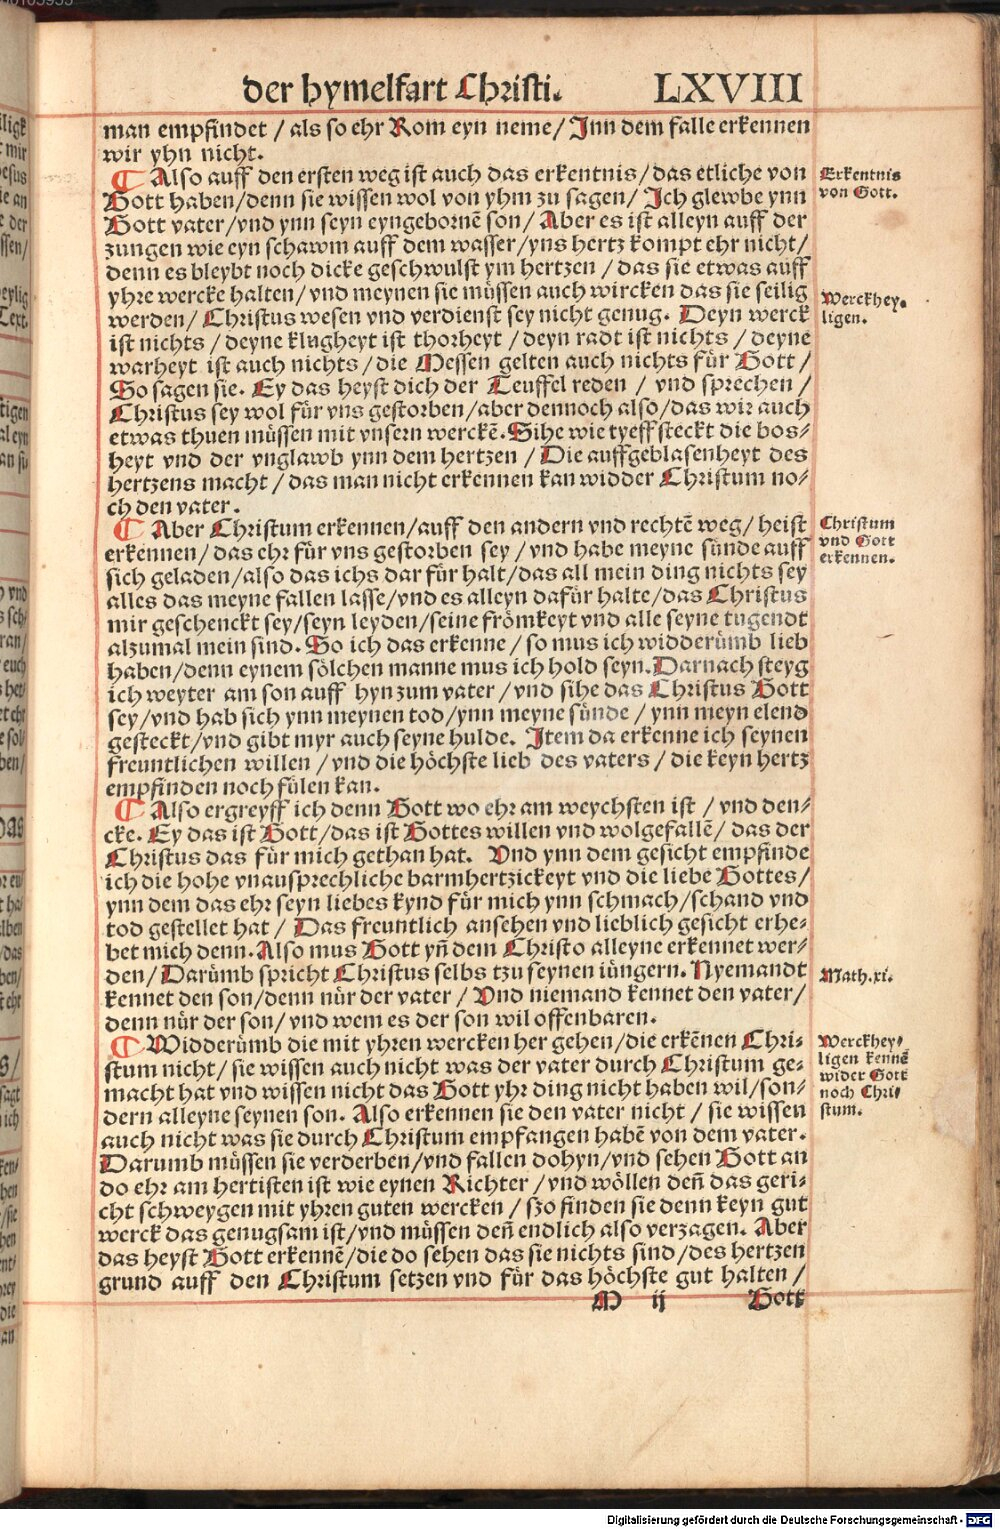 der hymelfart Christi. LXVIII
man empfindet / als so ehr Rom eyn neme / Jnn dem falle erkennen
wir yhn nicht.
¶ Also auff den ersten weg ist auch das erkentnis / das etliche von
Gott haben / denn sie wissen wol von yhm zu sagen / Jch glewbe ynn
Gott vater / vnd ynn seyn eyngebornē son / Aber es ist alleyn auff der
zungen wie eyn schawm auff dem wasser / yns hertz kompt ehr nicht /
denn es bleybt noch dicke geschwulst ym hertzen / das sie etwas auff
yhre wercke halten / vnd meynen sie müssen auch wircken das sie seilig
werden / Christus wesen vnd verdienst sey nicht genug. Deyn werck
ist nichts / deyne klugheyt ist thorheyt / deyn radt ist nichts / deyne
warheyt ist auch nichts / die Messen gelten auch nichts für Gott /
So sagen sie. Ey das heyst dich der Teuffel reden / vnd sprechen /
Christus sey wol für vns gestorben / aber dennoch also / das wir auch
etwas thuen müssen mit vnsern werckē. Sihe wie tyeff steckt die bos-
heyt vnd der vnglawb ynn dem hertzen / Die auffgeblasenheyt des
hertzens macht / das man nicht erkennen kan widder Christum no-
ch den vater.
¶ Aber Christum erkennen / auff den andern vnd rechtē weg / heist
erkennen / das ehr für vns gestorben sey / vnd habe meyne sünde auff
sich geladen / also das ichs dar für halt / das all mein ding nichts sey
alles das meyne fallen lasse / vnd es alleyn dafür halte / das Christus
mir geschenckt sey / seyn leyden / seine frömkeyt vnd alle seyne tugendt
alzumal mein sind. So ich das erkenne / so mus ich widderümb lieb
haben / denn eynem sölchen manne mus ich hold seyn. Darnach steyg
ich weyter am son auff hyn zum vater / vnd sihe das Christus Gott
sey / vnd hab sich ynn meynen tod / ynn meyne sünde / ynn meyn elend
gesteckt / vnd gibt myr auch seyne hulde. Jtem da erkenne ich seynen
freuntlichen willen / vnd die höchste lieb des vaters / die keyn hertz
empfinden noch fülen kan.
¶ Also ergreyff ich denn Gott wo ehr am weychsten ist / vnd den-
cke. Ey das ist Gott / das ist Gottes willen vnd wolgefallē / das der
Christus das für mich gethan hat. Vnd ynn dem gesicht empfinde
ich die hohe vnausprechliche barmhertzickeyt vnd die liebe Gottes /
ynn dem das ehr seyn liebes kynd für mich ynn schmach / schand vnd
tod gestellet hat / Das freuntlich ansehen vnd lieblich gesicht erhe-
bet mich denn. Also mus Gott yn̄ dem Christo alleyne erkennet wer-
den / Darümb spricht Christus selbs tzu seynen iüngern. Nyemandt
kennet den son / denn nür der vater / Vnd niemand kennet den vater /
denn nür der son / vnd wem es der son wil offenbaren.
¶ Widderümb die mit yhren wercken her gehen / die erkēnen Chri-
stum nicht / sie wissen auch nicht was der vater durch Christum ge-
macht hat vnd wissen nicht das Gott yhr ding nicht haben wil / son-
dern alleyne seynen son. Also erkennen sie den vater nicht / sie wissen
auch nicht was sie durch Christum empfangen habē von dem vater.
Darumb müssen sie verderben / vnd fallen dohyn / vnd sehen Gott an
do ehr am hertisten ist wie eynen Richter / vnd wöllen den̄ das geri-
cht schweygen mit yhren guten wercken / szo finden sie denn keyn gut
werck das genugsam ist / vnd müssen den̄ endlich also verzagen. Aber
das heyst Gott erkennē / die do sehen das sie nichts sind / des hertzen
grund auff den Christum setzen vnd für das höchste gut halten /
M ij Gott
Erkentnis
von Gott.
Werckhey-
ligen.
Christum
vnd Gott
erkennen.
Math.xi.
Werckhey-
ligen kennē
wider Gott
noch Chri-
stum.
Digitalisierung gefördert durch die Deutsche Forschungsgemeinschaft - DFG